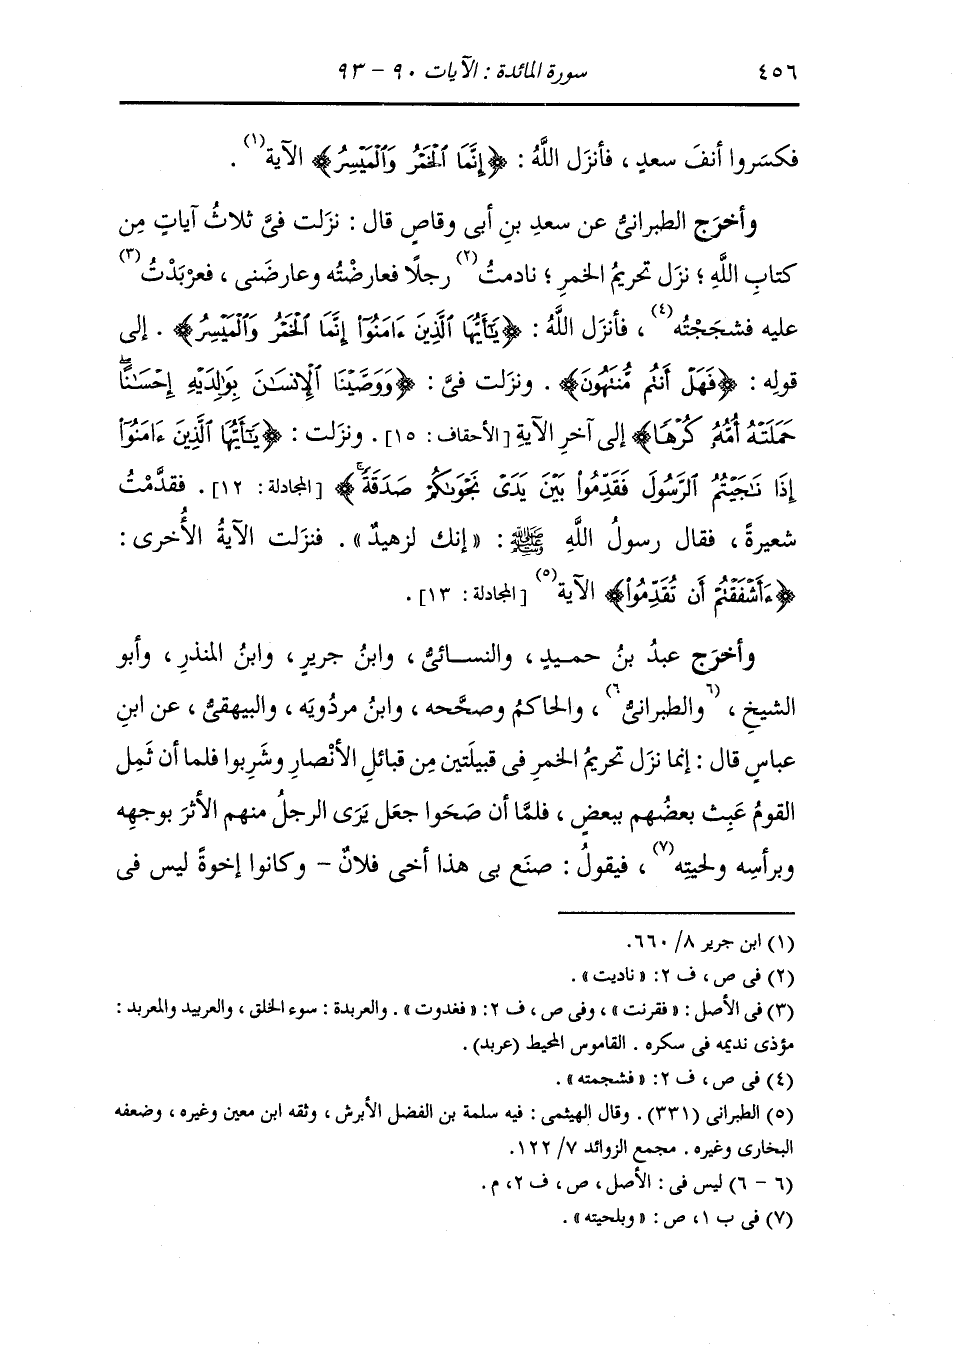 ٤٥٦ سورة المائدة : الآيات ٩٠ – ٩٣
فكسَروا أنفَ سعدٍ ، فأنزَل اللَّهُ : ﴿إِنَّمَا ٱلْخَمْرُ وَٱلْمَيْسِرُ﴾ الآية(١) .
وأخرَج الطبرانىُّ عن سعدِ بنِ أبى وقاصٍ قال : نزَلت فىَّ ثلاثُ آياتٍ مِن
كتابِ اللَّهِ ؛ نزَل تحريمُ الخمرِ ؛ نادمتُ(٢) رجلًا فعارضْتُه وعارضَنى ، فعرْبَدْتُ(٣)
عليه فشجَجْتُه(٤) ، فأنزَل اللَّهُ : ﴿يَٰٓأَيُّهَا ٱلَّذِينَ ءَامَنُوٓا۟ إِنَّمَا ٱلْخَمْرُ وَٱلْمَيْسِرُ﴾ . إلى
قولِه : ﴿فَهَلْ أَنتُم مُّنتَهُونَ﴾ . ونزَلت فىَّ : ﴿وَوَصَّيْنَا ٱلْإِنسَٰنَ بِوَٰلِدَيْهِ إِحْسَٰنًا ۖ
حَمَلَتْهُ أُمُّهُۥ كُرْهًا﴾ إلى آخرِ الآيةِ [الأحقاف : ١٥] . ونزَلت : ﴿يَٰٓأَيُّهَا ٱلَّذِينَ ءَامَنُوٓا۟
إِذَا نَٰجَيْتُمُ ٱلرَّسُولَ فَقَدِّمُوا۟ بَيْنَ يَدَىْ نَجْوَىٰكُمْ صَدَقَةً ۚ﴾ [المجادلة : ١٢] . فقدَّمْتُ
شعيرةً ، فقال رسولُ اللَّهِ ﷺ : «إنك لزهيدٌ» . فنزَلت الآيةُ الأُخرى :
﴿ءَأَشْفَقْتُمْ أَن تُقَدِّمُوا۟﴾ الآية(٥) [المجادلة : ١٣] .
وأخرَج عبدُ بنُ حميدٍ ، والنسائىُّ ، وابنُ جريرٍ ، وابنُ المنذرِ ، وأبو
الشيخِ ، (٦)والطبرانىُّ(٦) ، والحاكمُ وصحَّحه ، وابنُ مردُويَه ، والبيهقىُّ ، عن ابنِ
عباسٍ قال : إنما نزَل تحريمُ الخمرِ فى قبيلَتين مِن قبائلِ الأنْصارِ وشَرِبوا فلما أن ثَمِل
القومُ عَبِث بعضُهم ببعضٍ ، فلمَّا أن صَحَوا جعَل يَرَى الرجلُ منهم الأثرَ بوجهِه
وبرأسِه ولحيتِه(٧) ، فيقولُ : صنَع بى هذا أخى فلانٌ – وكانوا إخوةً ليس فى
(١) ابن جرير ٨/ ٦٦٠.
(٢) فى ص ، ف ٢: «ناديت» .
(٣) فى الأصل : «فقرنت» ، وفى ص ، ف ٢: «فغدوت» . والعربدة : سوء الخلق ، والعربيد والمعربد :
مؤذى نديمه فى سكره . القاموس المحيط (عربد) .
(٤) فى ص ، ف ٢: «فشجمته» .
(٥) الطبرانى (٣٣١) . وقال الهيثمى : فيه سلمة بن الفضل الأبرش ، وثقه ابن معين وغيره ، وضعفه
البخارى وغيره . مجمع الزوائد ٧/ ١٢٢.
(٦ – ٦) ليس فى : الأصل ، ص ، ف ٢، م .
(٧) فى ب ١، ص : «وبلحيته» .